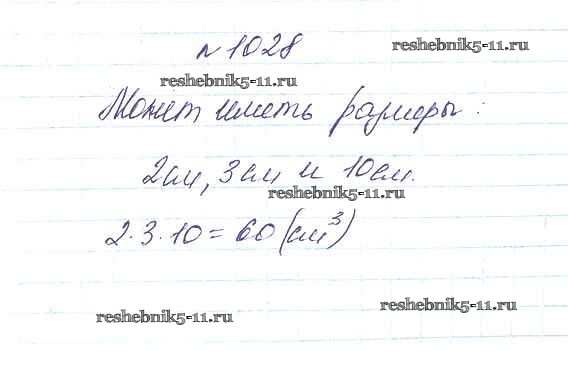 № 1028
reshebnik5-11.ru
reshebnik5-11.ru
Может иметь размеры:
2см, 3см и 10см.
reshebnik5-11.ru
2·3·10=60(см³)
reshebnik5-11.ru
reshebnik5-11.ru